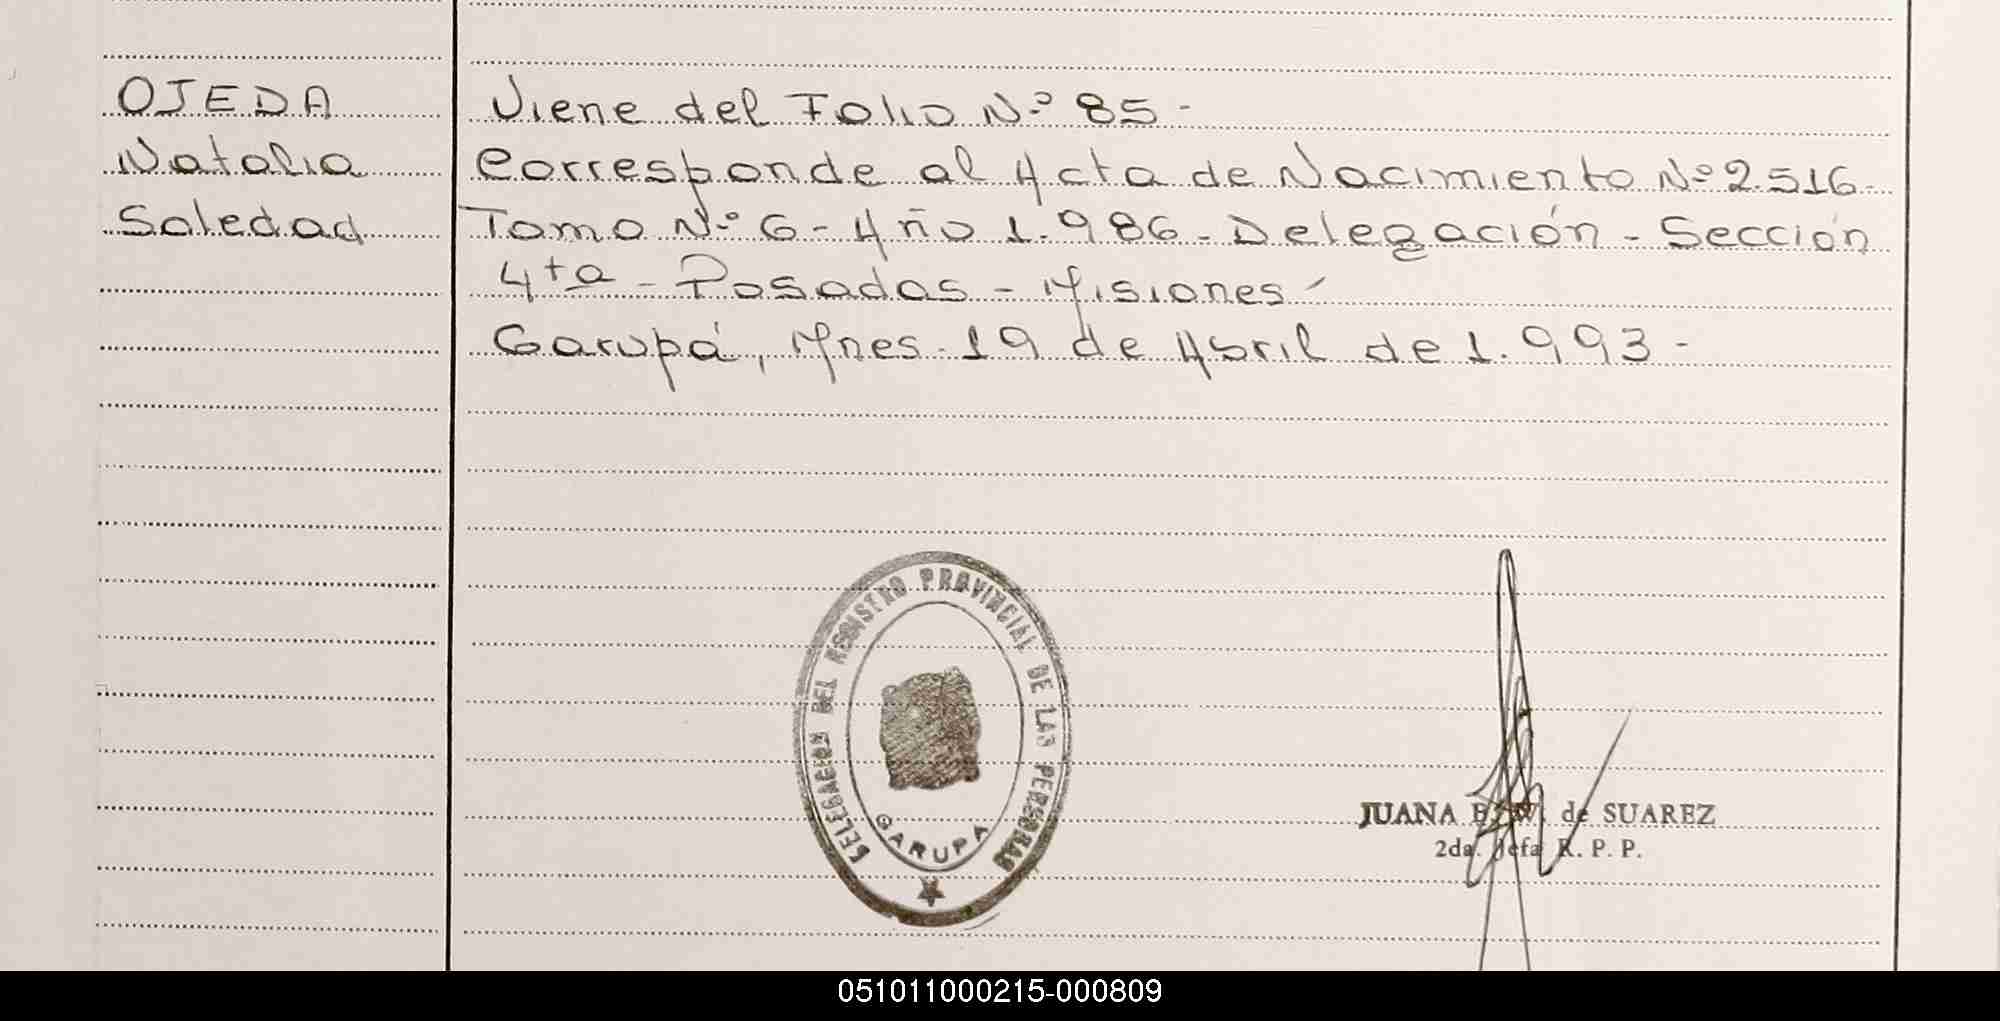 OJEDA
Natalia
Soledad
Viene del Folio N.º 85 -
Corresponde al Acta de Nacimiento Nº 2.516 -
Tomo N.º 6 - Año 1.986 - Delegación - Sección
4ta - Posadas - Misiones -
Garupá, Mnes. 19 de Abril de 1.993 -
DELEGACION DEL REGISTRO PROVINCIAL DE LAS PERSONAS
GARUPA
JUANA de SUAREZ
2da. Jefa R. P. P.
051011000215-000809